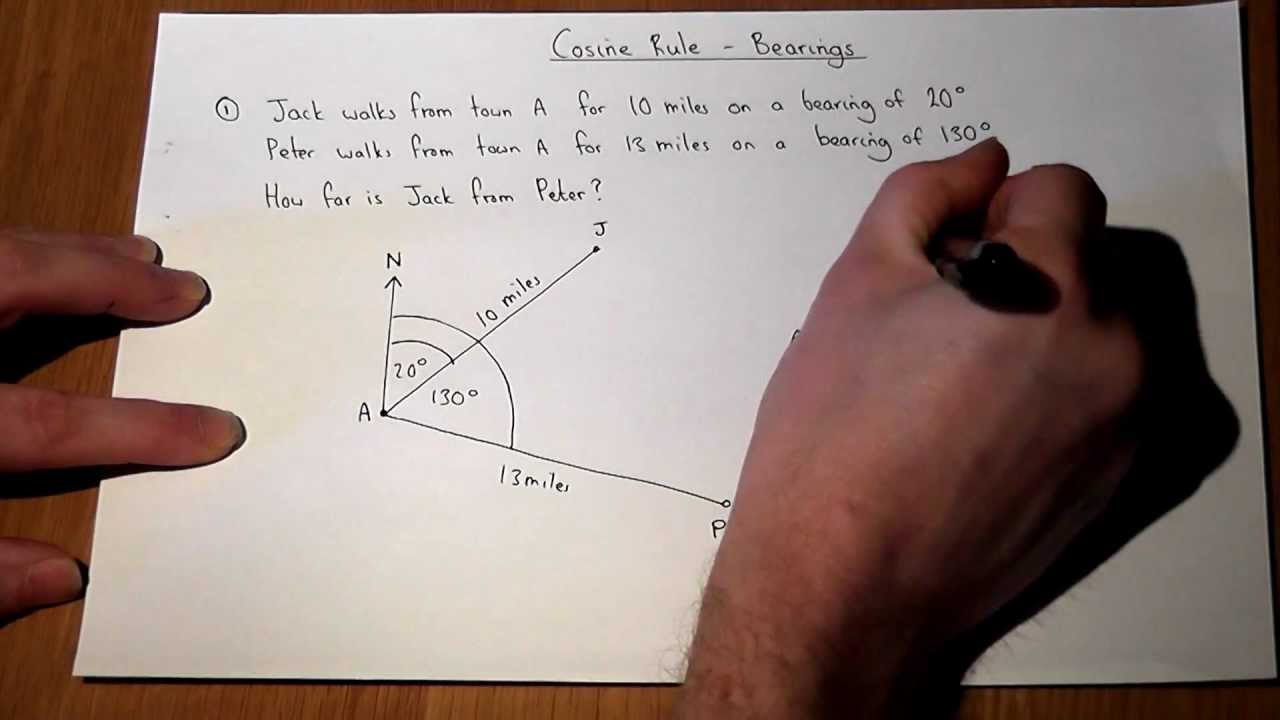 Cosine Rule - Bearings
① Jack walks from town A for 10 miles on a bearing of 20°
Peter walks from town A for 13 miles on a bearing of 130°
How far is Jack from Peter?
J
N
10 miles
20°
130°
A
13 miles
P